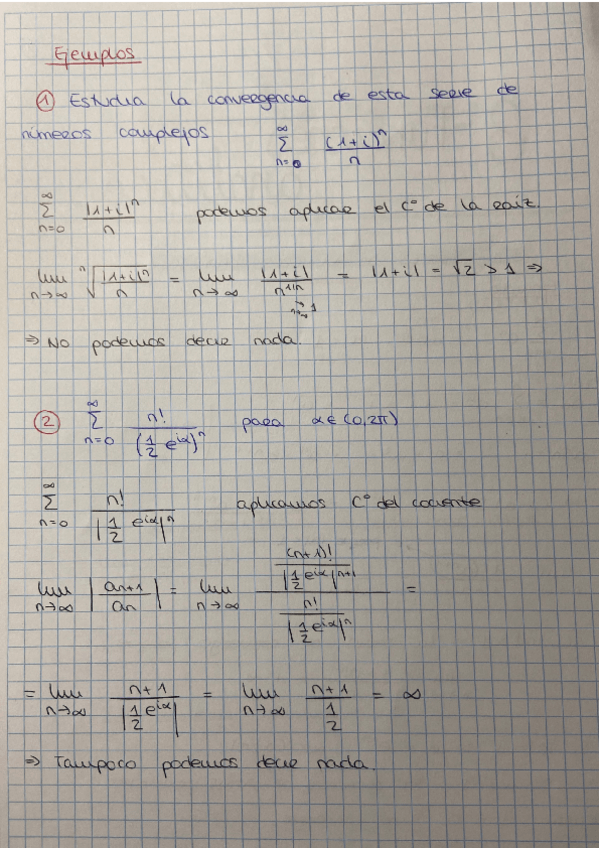 Ejemplos
① Estudia la convergencia de esta serie de
números complejos $\sum_{n=0}^{\infty} \frac{(1+i)^n}{n}$
$\sum_{n=0}^{\infty} \frac{|1+i|^n}{n}$ podemos aplicar el Cº de la raíz.
$\lim_{n\to\infty} \sqrt[n]{\frac{|1+i|^n}{n}} = \lim_{n\to\infty} \frac{|1+i|}{n^{1/n}} = |1+i| = \sqrt{2} > 1 \Rightarrow$
$\xrightarrow[n\to\infty]{} 1$
⇒ No podemos decir nada.
② $\sum_{n=0}^{\infty} \frac{n!}{\left(\frac{1}{2} e^{i\alpha}\right)^n}$ para $\alpha \in (0, 2\pi)$
$\sum_{n=0}^{\infty} \frac{n!}{\left|\frac{1}{2} e^{i\alpha}\right|^n}$ aplicamos Cº del cociente
$\lim_{n\to\infty} \left|\frac{a_{n+1}}{a_n}\right| = \lim_{n\to\infty} \frac{\frac{(n+1)!}{\left|\frac{1}{2} e^{i\alpha}\right|^{n+1}}}{\frac{n!}{\left|\frac{1}{2} e^{i\alpha}\right|^n}} =$
$= \lim_{n\to\infty} \frac{n+1}{\left|\frac{1}{2} e^{i\alpha}\right|} = \lim_{n\to\infty} \frac{n+1}{\frac{1}{2}} = \infty$
⇒ Tampoco podemos decir nada.